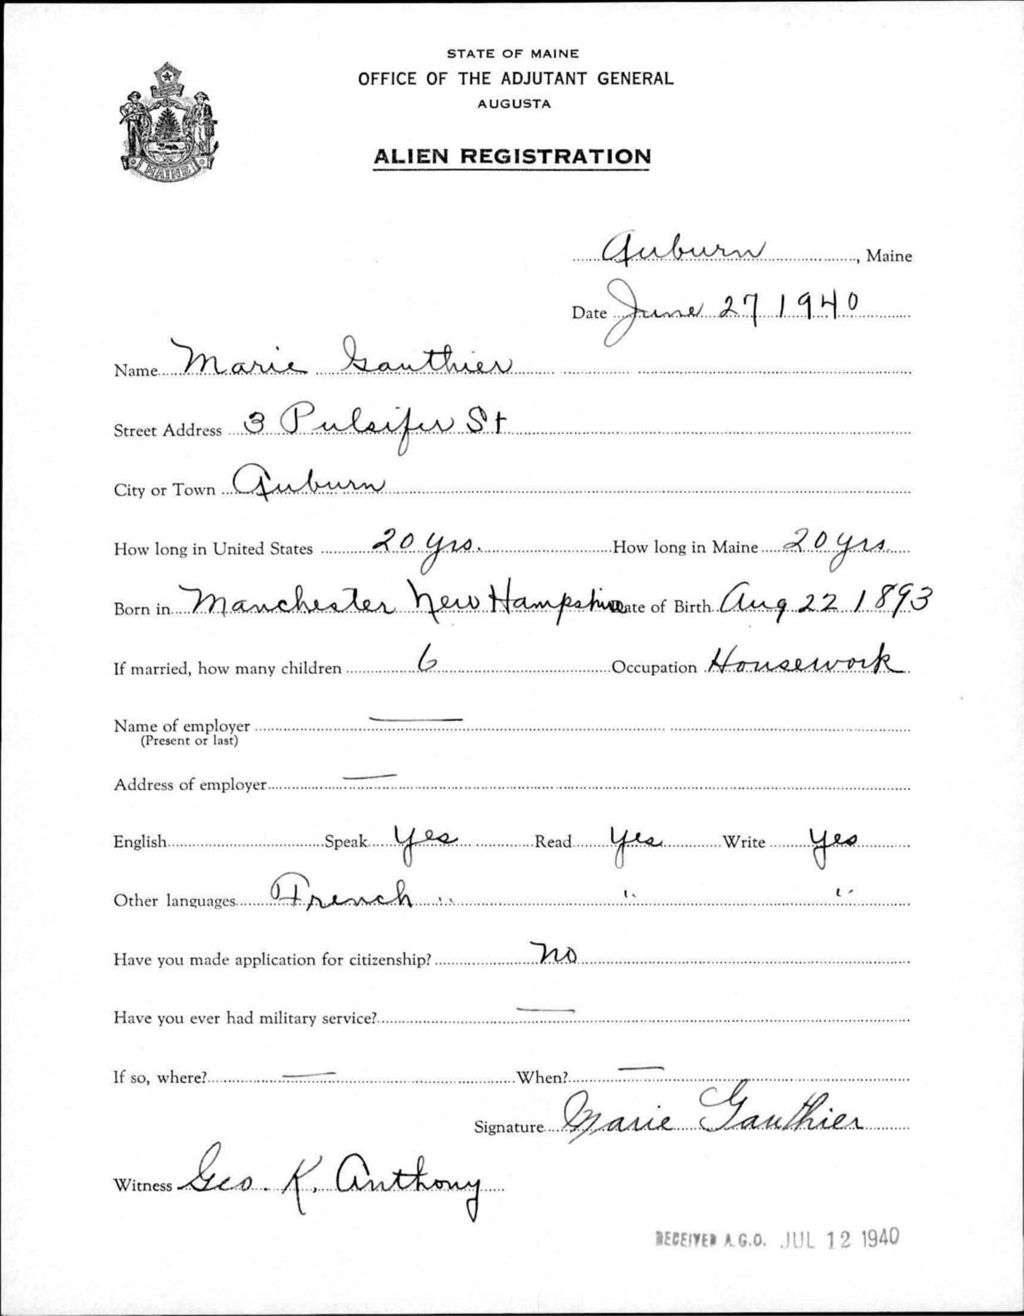 STATE OF MAINE
OFFICE OF THE ADJUTANT GENERAL
AUGUSTA
ALIEN REGISTRATION
MAINE
Auburn, Maine
Date June 27 1940
Name Marie Gauthier
Street Address 3 Pulsifer St
City or Town Auburn
How long in United States 20 yrs. How long in Maine 20 yrs
Born in Manchester New Hampshire Date of Birth Aug 22 1893
If married, how many children 6 Occupation Housework
Name of employer —
(Present or last)
Address of employer —
English Speak Yes Read Yes Write Yes
Other languages French " " "
Have you made application for citizenship? No
Have you ever had military service? —
If so, where? — When? —
Signature Marie Gauthier
Witness Geo. K. Anthony
RECEIVED A.G.O. JUL 12 1940